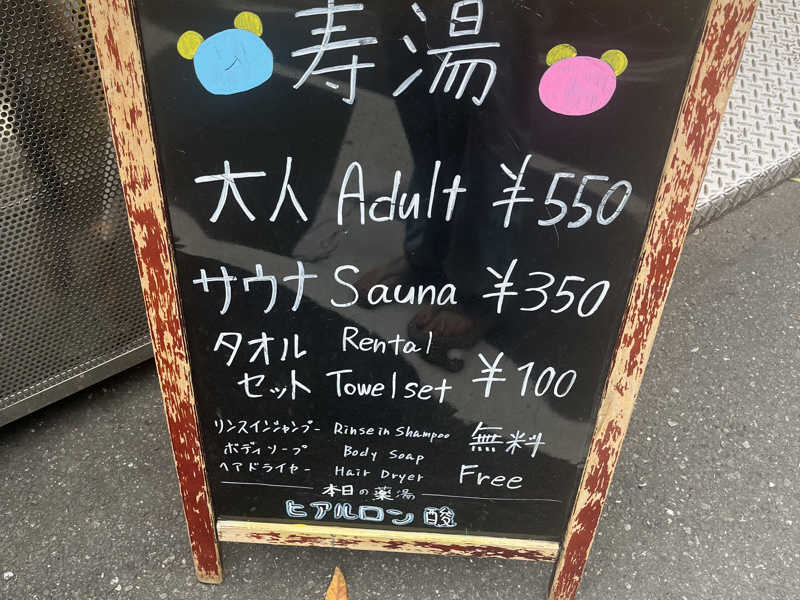 寿湯
大人 Adult ¥550
サウナ Sauna ¥350
タオル Rental
セット Towel set ¥100
リンスインシャンプー Rinse in Shampoo
ボディソープ Body Soap 無料
ヘアドライヤー Hair Dryer Free
本日の薬湯
ヒアルロン酸